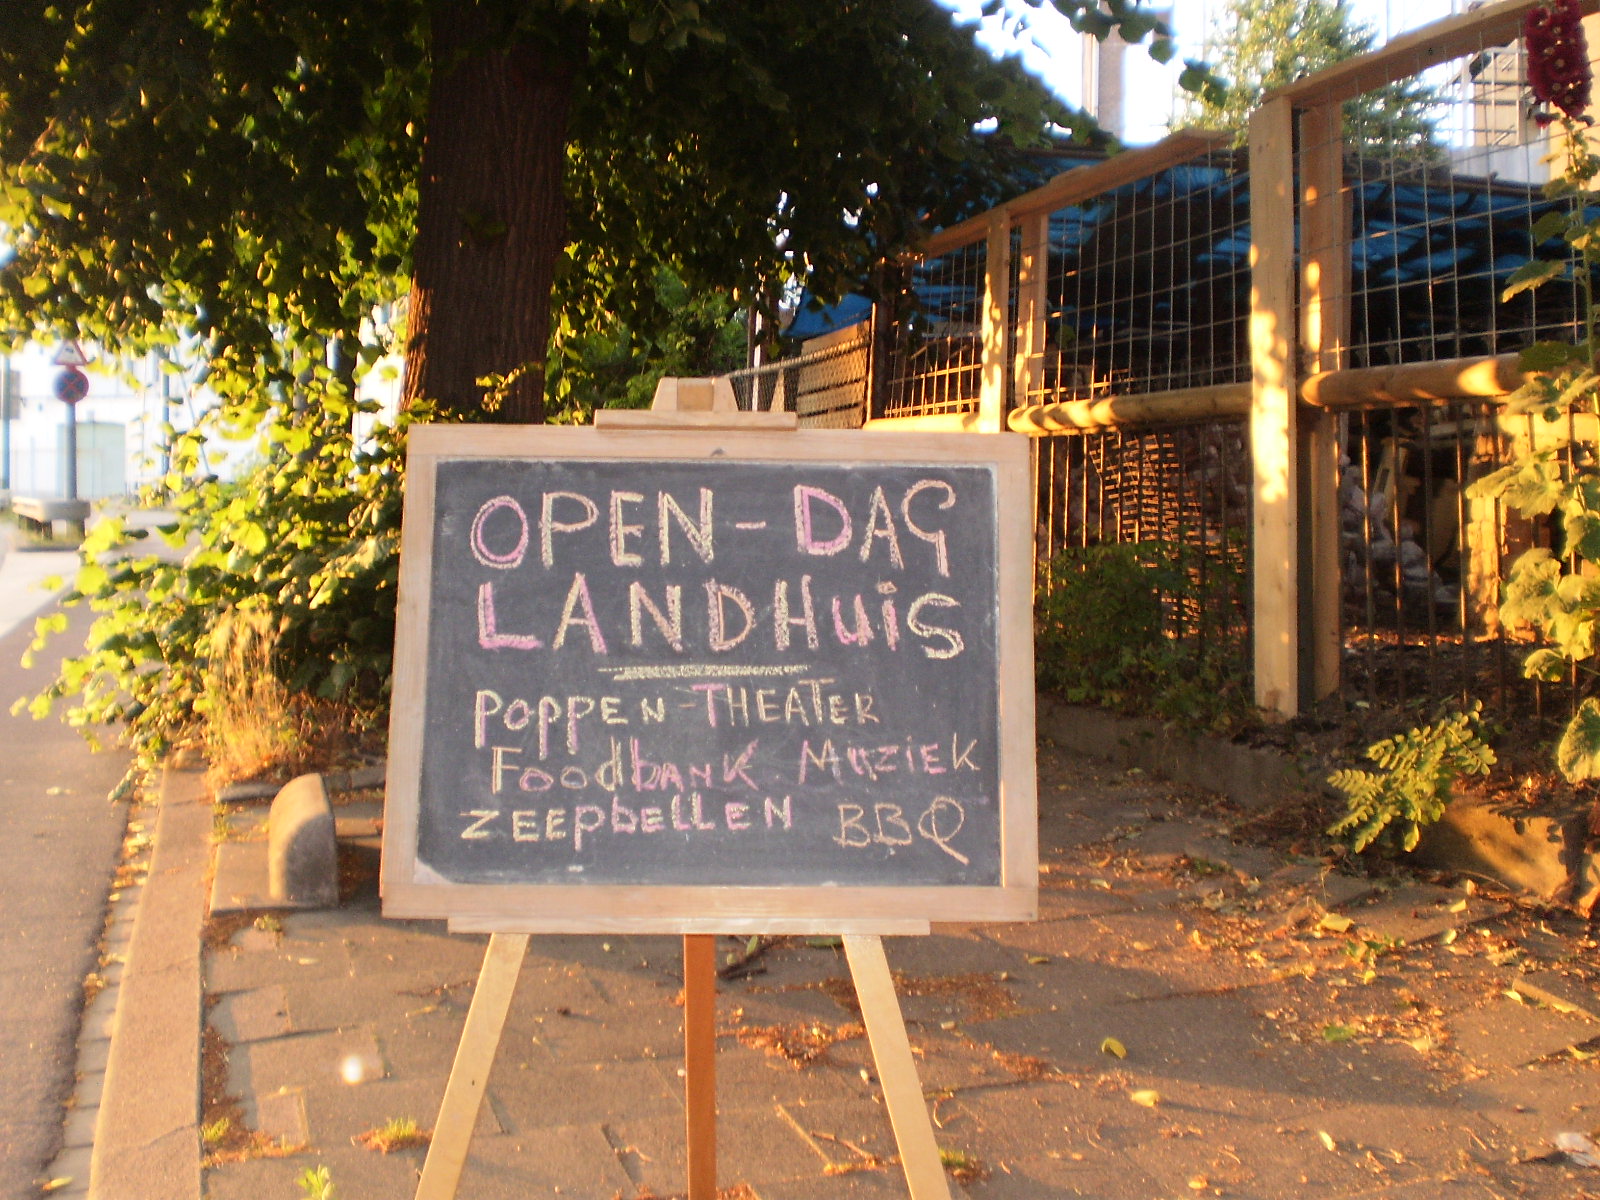 OPEN-DAG
LANDHUiS
POPPEN-THEATER
FoodbANK MUZIEK
ZEEPbELLEN BBQ